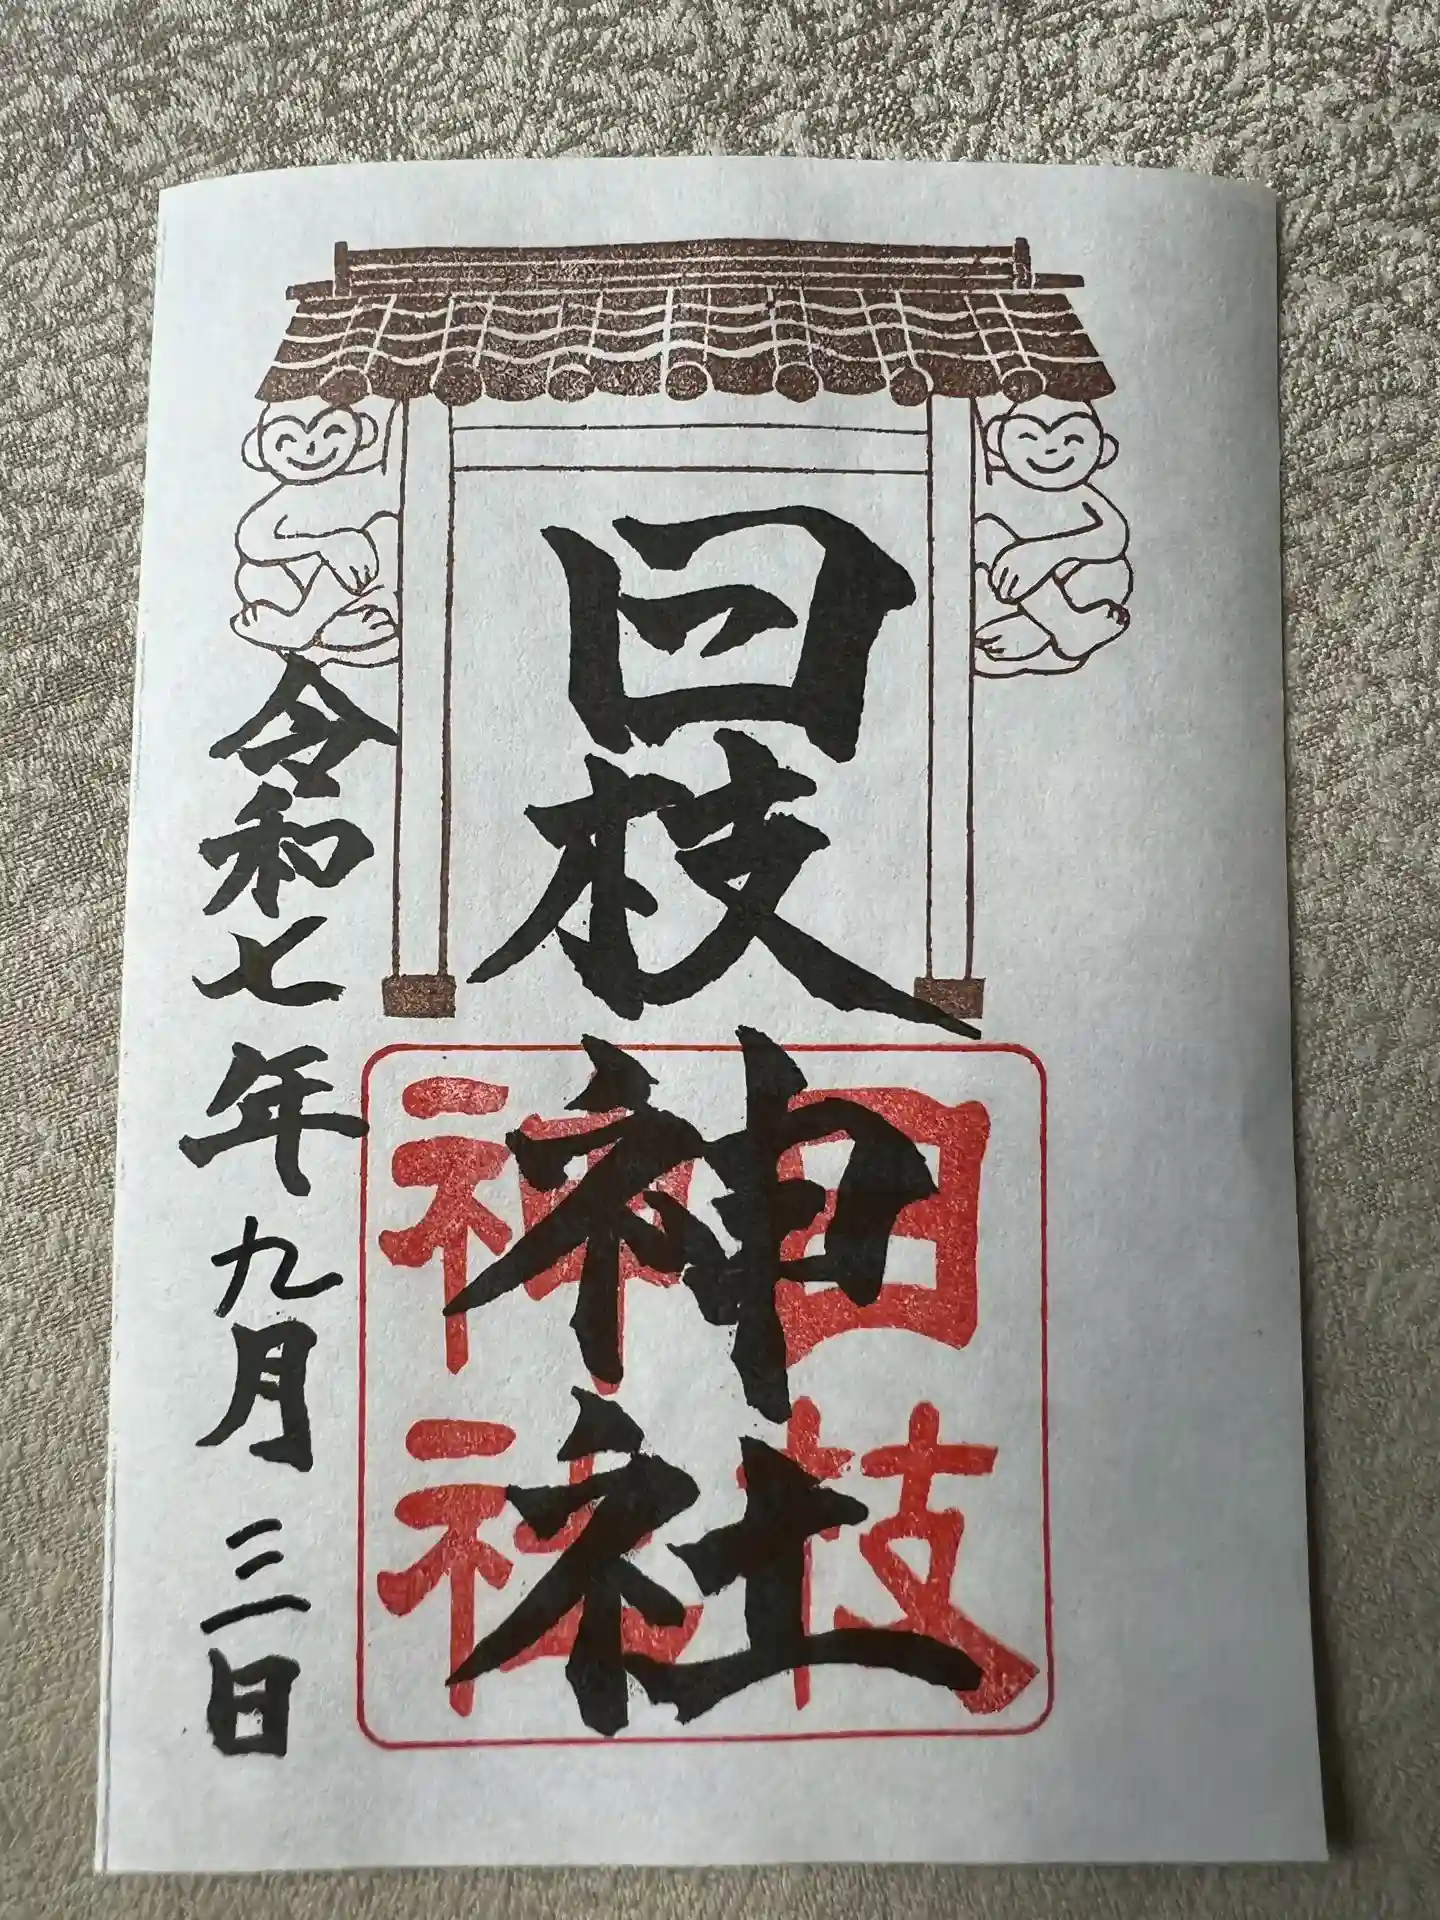 日枝神社
日枝
神社
令和七年九月三日